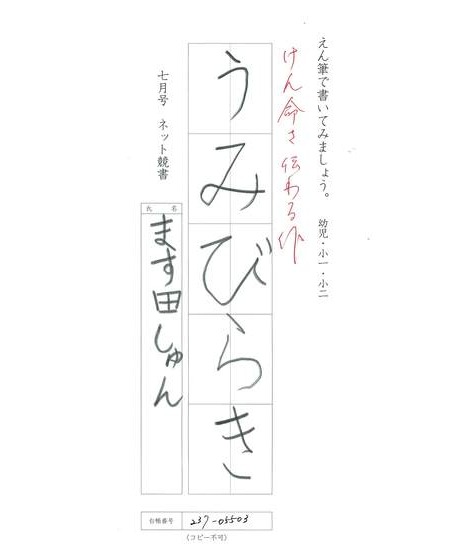 えん筆で書いてみましょう。 幼児・小一・小二
けん命さ伝わる作
うみびらき
七月号 ネット競書
氏名
ます田しゅん
台帳番号 237-05503
(コピー不可)